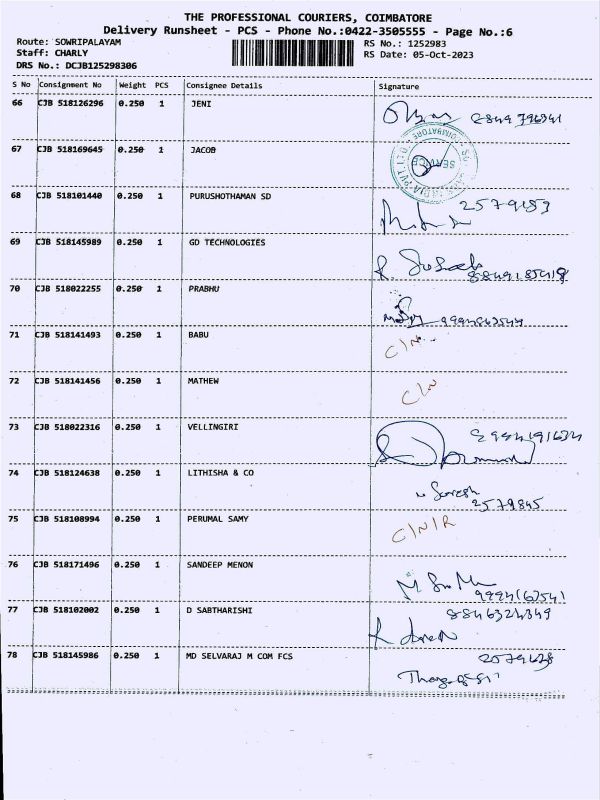 THE PROFESSIONAL COURIERS, COIMBATORE
Delivery Runsheet - PCS - Phone No.:0422-3505555 - Page No.:6
Route: SOWRIPALAYAM RS No.: 1252983
Staff: CHARLY RS Date: 05-Oct-2023
DRS No.: DCJB125298306
S No Consignment No Weight PCS Consignee Details Signature
66 CJB 518126296 0.250 1 JENI
67 CJB 518169645 0.250 1 JACOB
SERVICE
68 CJB 518101440 0.250 1 PURUSHOTHAMAN SD 2579159
69 CJB 518145989 0.250 1 GD TECHNOLOGIES
70 CJB 518022255 0.250 1 PRABHU
71 CJB 518141493 0.250 1 BABU C/N
72 CJB 518141456 0.250 1 MATHEW C/N
73 CJB 518022316 0.250 1 VELLINGIRI
74 CJB 518124638 0.250 1 LITHISHA & CO Suresh
2579845
75 CJB 518108994 0.250 1 PERUMAL SAMY C/N/R
76 CJB 518171496 0.250 1 SANDEEP MENON
77 CJB 518102002 0.250 1 D SABTHARISHI 8846324349
78 CJB 518145986 0.250 1 MD SELVARAJ M COM FCS